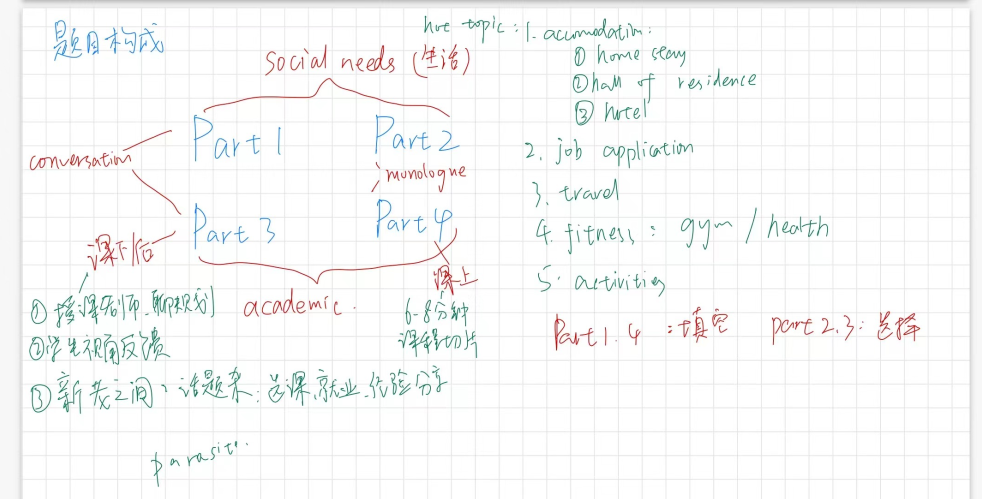 题目构成
hot topic : 1. accumodation :
① home stay
② hall of residence
③ hotel
2. job application
3. travel
4. fitness : gym / health
5. activities
social needs (生活)
Part 1 Part 2
conversation
monologue
Part 3 Part 4
课下/后
课上
academic.
① 授课老师、聊规划
② 学生视角反馈
③ 新老之间：话题杂：选课、就业、经验分享
6-8分钟
课程切片
Part 1.4 : 填空 part 2.3: 选择
parasit